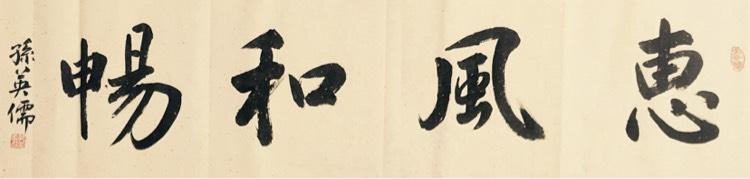 惠風和暢
孫英儒